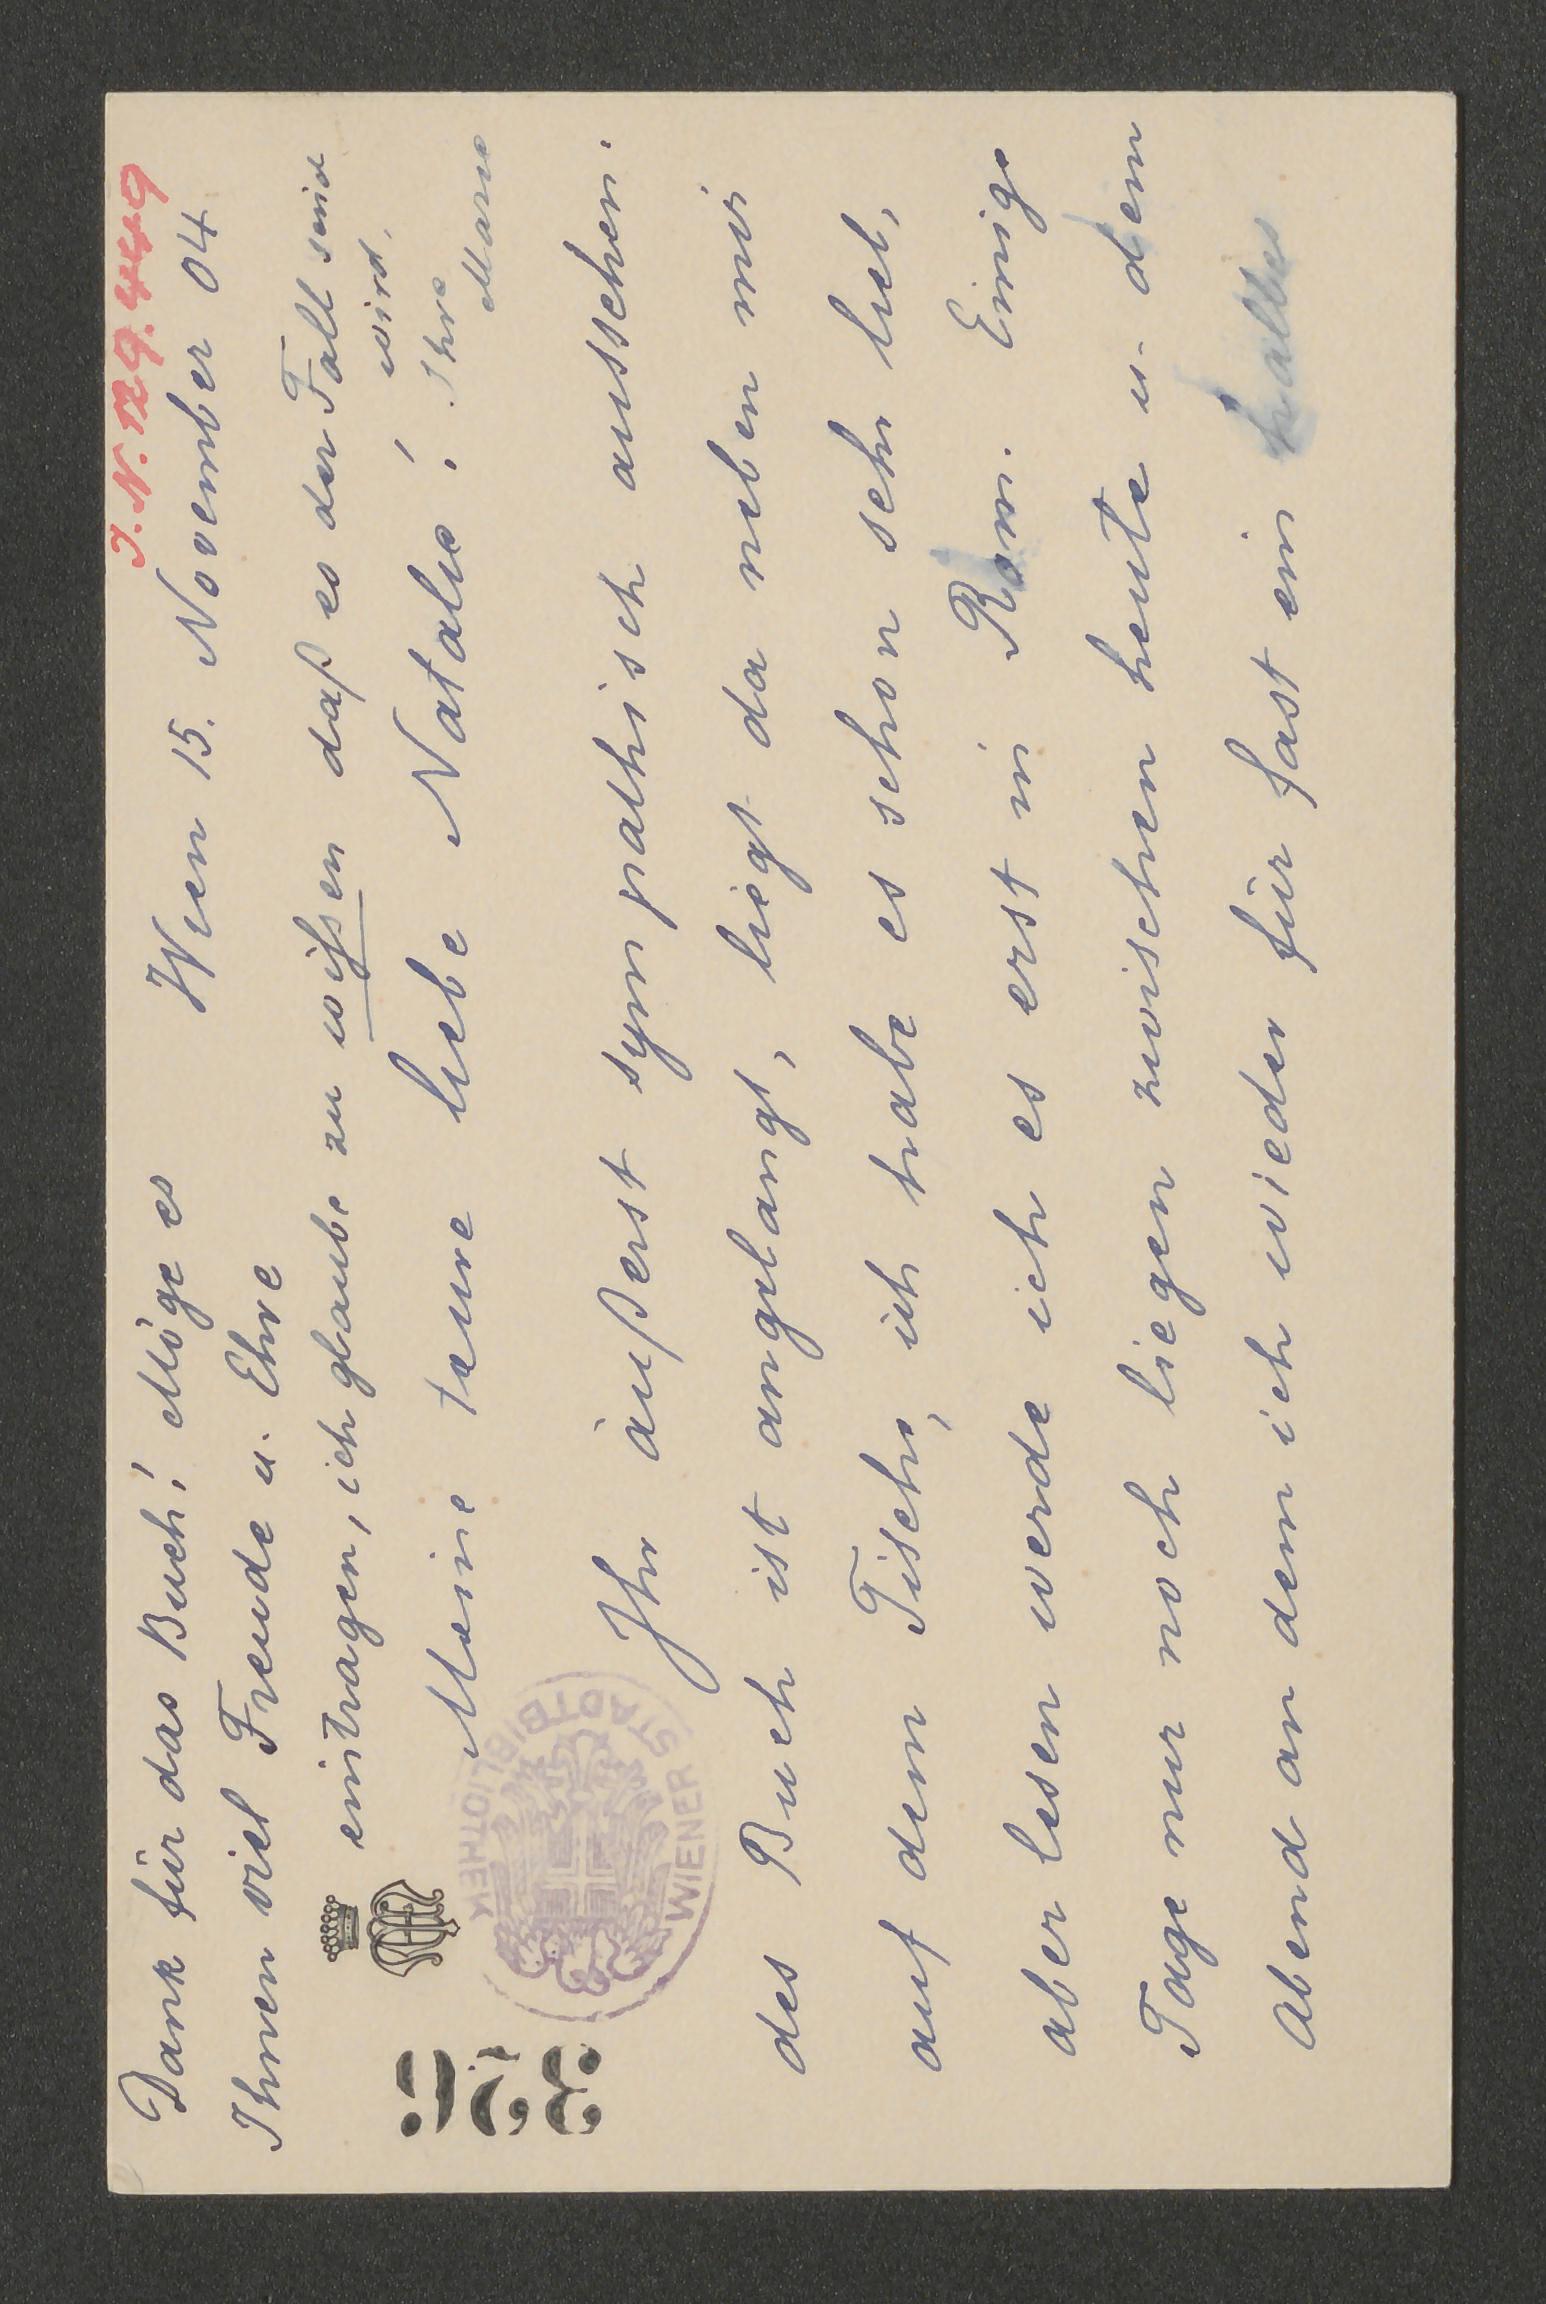 J. N. 129.449
Wien 15. November 04
Meine teure liebe Natalie!
Ihr äußerst sympathisch aussehen-
des Buch ist angelangt, liegt da neben mir
auf dem Tische, ich habe es schon sehr lieb,
aber lesen werde ich es erst in Rom. Einige
Tage nur noch liegen zwischen heute u. dem
Abend an dem ich wieder für fast ein halbes
Dank für das Buch! Möge es
Ihnen viel Freude u. Ehre
eintragen, ich glaube zu wißen daß es der Fall sein
wird.
Ihre
Marie
WIENER STADTBIBLIOTHEK